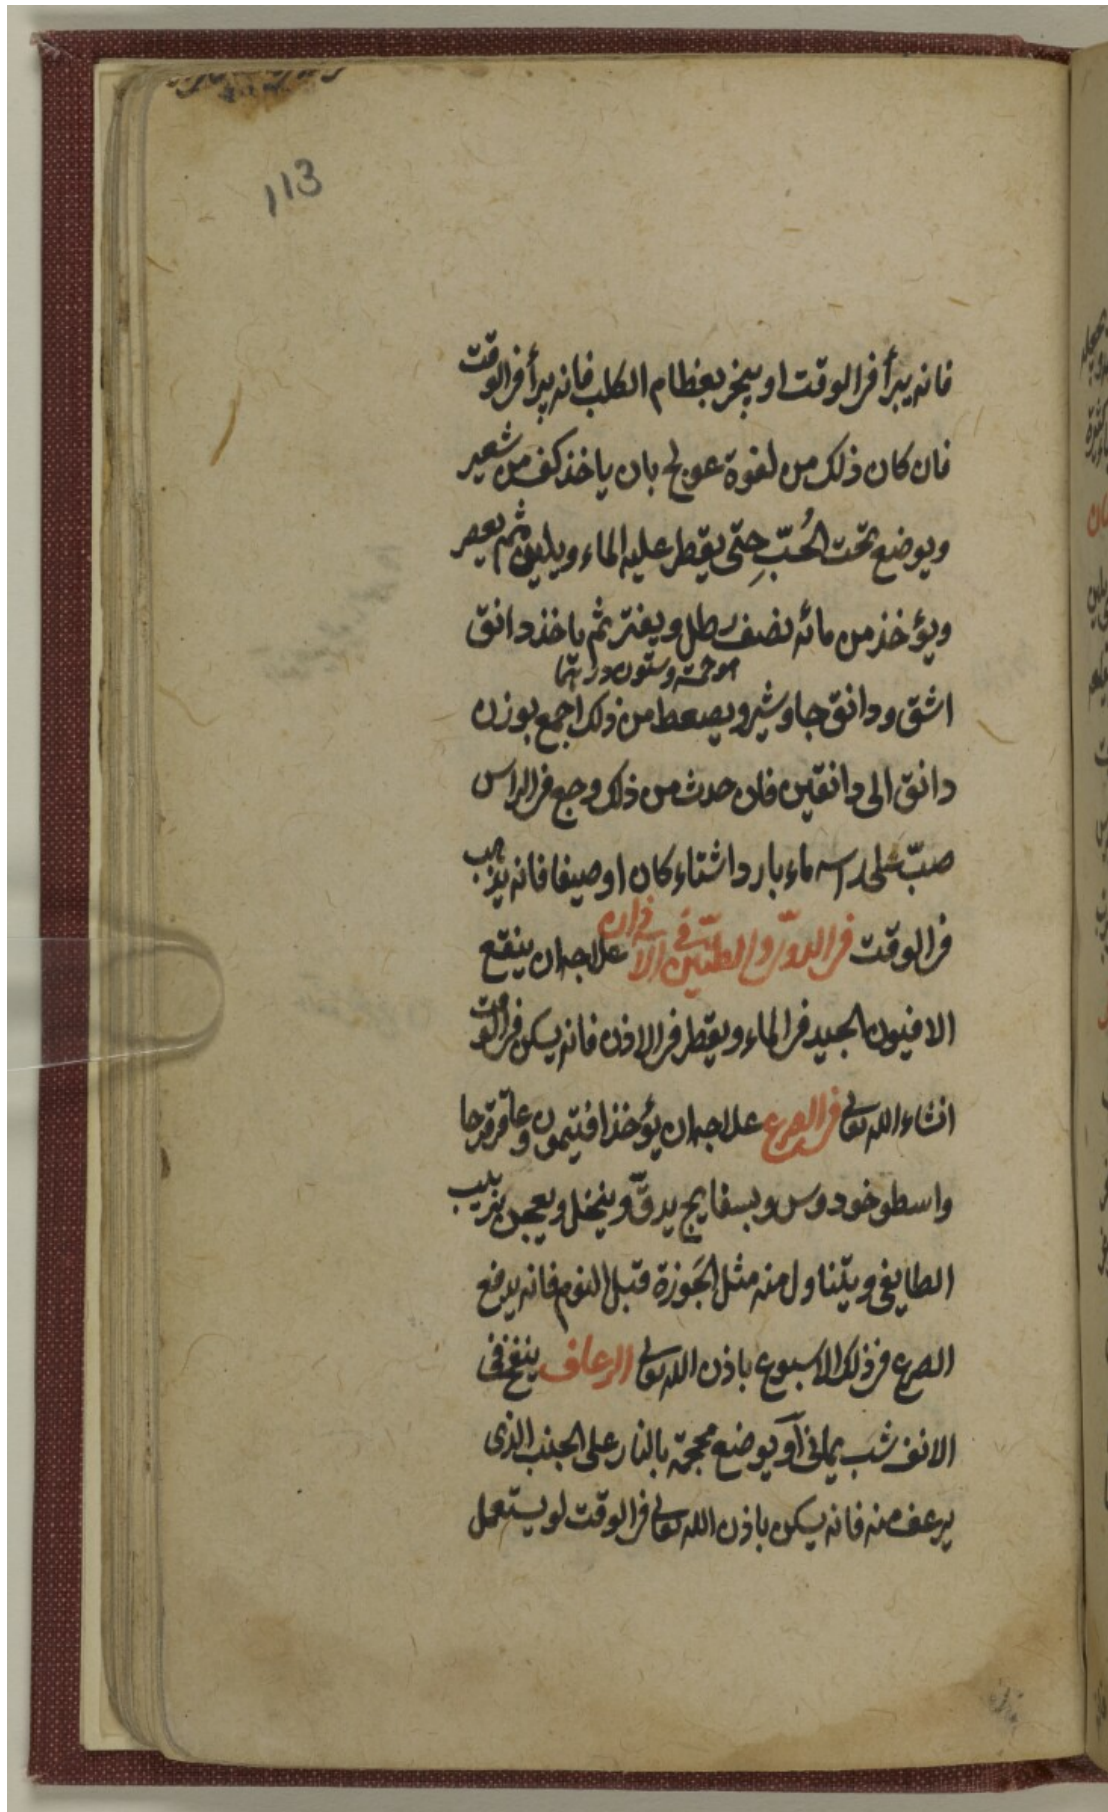 113
فانه يبرأ في الوقت او يبخر بعظام الكلب فانه يبرأ في الوقت
فان كان ذلك من لقوة عولج بان ياخذ كف من شعير
ويوضع تحت الحُبّ حتّى يقطر عليه الماء ويلين ثم يعصر
ويؤخذ من مائه نصف رطل ويفتر ثم ياخذ دانق
اشق ودانق جاوشير ويصعط من ذلك اجمع بوزن
دانق الى دانقين فان حدث من ذلك وجع في الراس
صبّ على راسه ماء باردا شتاء كان او صيفا فانه يذهب
في الوقت في الدوىّ والطنين في الاذان علاجه ان ينقع
الافيون الجيد في الماء ويقطر في الاذن فانه يسكن في الوقت
انشاء الله تعالى في الصرع علاجه ان يؤخذ افتيمون وعاقرقرحا
واسطوخودوس وبسفايج يدقّ وينخل ويعجن بزبيب
الطايفي ويتناول منه مثل الجَوزة قبل النوم فانه يدفع
الصرع في ذلك الاسبوع باذن الله تعالى الرعاف ينفخ في
الانف شب يماني او يوضع محجمة بالنار على الجنب الذى
يرعف منه فانه يسكن باذن الله تعالى في الوقت لو يستعمل